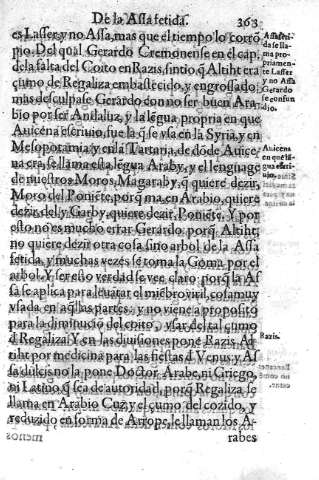 De la Assa fetida. 363
es Lasser, y no Assa, mas que el tiempo lo corrõ
pio. Del qual Gerardo Cremonense en el capi.
dela falta del Coito en Razis, sintio, q̃ Altiht era
çumo de Regaliza embastecido, y engrossado:
mas desculpase Gerardo don no ser buen Ara-
bio por ser Andaluz, y la lẽgua propria en que
Auicena escriuio, fue la q̃ se vsa en la Syria, y en
Mesopotamia, y en la Tartaria, de dõde Auice-
na era, se llama esta lẽgua Araby, y el lenguage
de nuestros Moros, Magaraby, q̃ quiere dezir,
Moro del Poniẽte, porq̃ ma, en Arabio, quiere
dezir, del, y Garby, quiere dezir, Poniẽte. Y por
esto no es mucho errar Gerardo. porq̃ Altiht,
no quiere dezir otra cosa sino arbol de la Assa
fetida, y muchas vezes se toma la Goma por el
arbol. Y ser esto verdad se vee claro porq̃ la As
sa se aplica para leuãtar el miẽbro viril, cosa muy
vsada en aq̃llas partes: y no viene a proposito
para la diminuciõ del coito, vsar del tal çumo
d̃ Regaliza. Y en las diuisiones pone Razis Al
tiht por medicina para las fiestas d̃ Venus, y As
sa dulcis no la pone Doctor Arabe, ni Griego,
ni Latino, q̃ sea de autoridad, porq̃ Regaliza se
llama en Arabio Cuz, y el çumo del cozido, y
reduzido en forma de Arrope, le llaman los A-
rabes
Assa feti-
da se lla-
ma pro-
priamen-
te Lasser
y no Assa
Gerardo
se confun
dio.
Auicena
en que lẽ-
gua escri-
uio.
Razis.